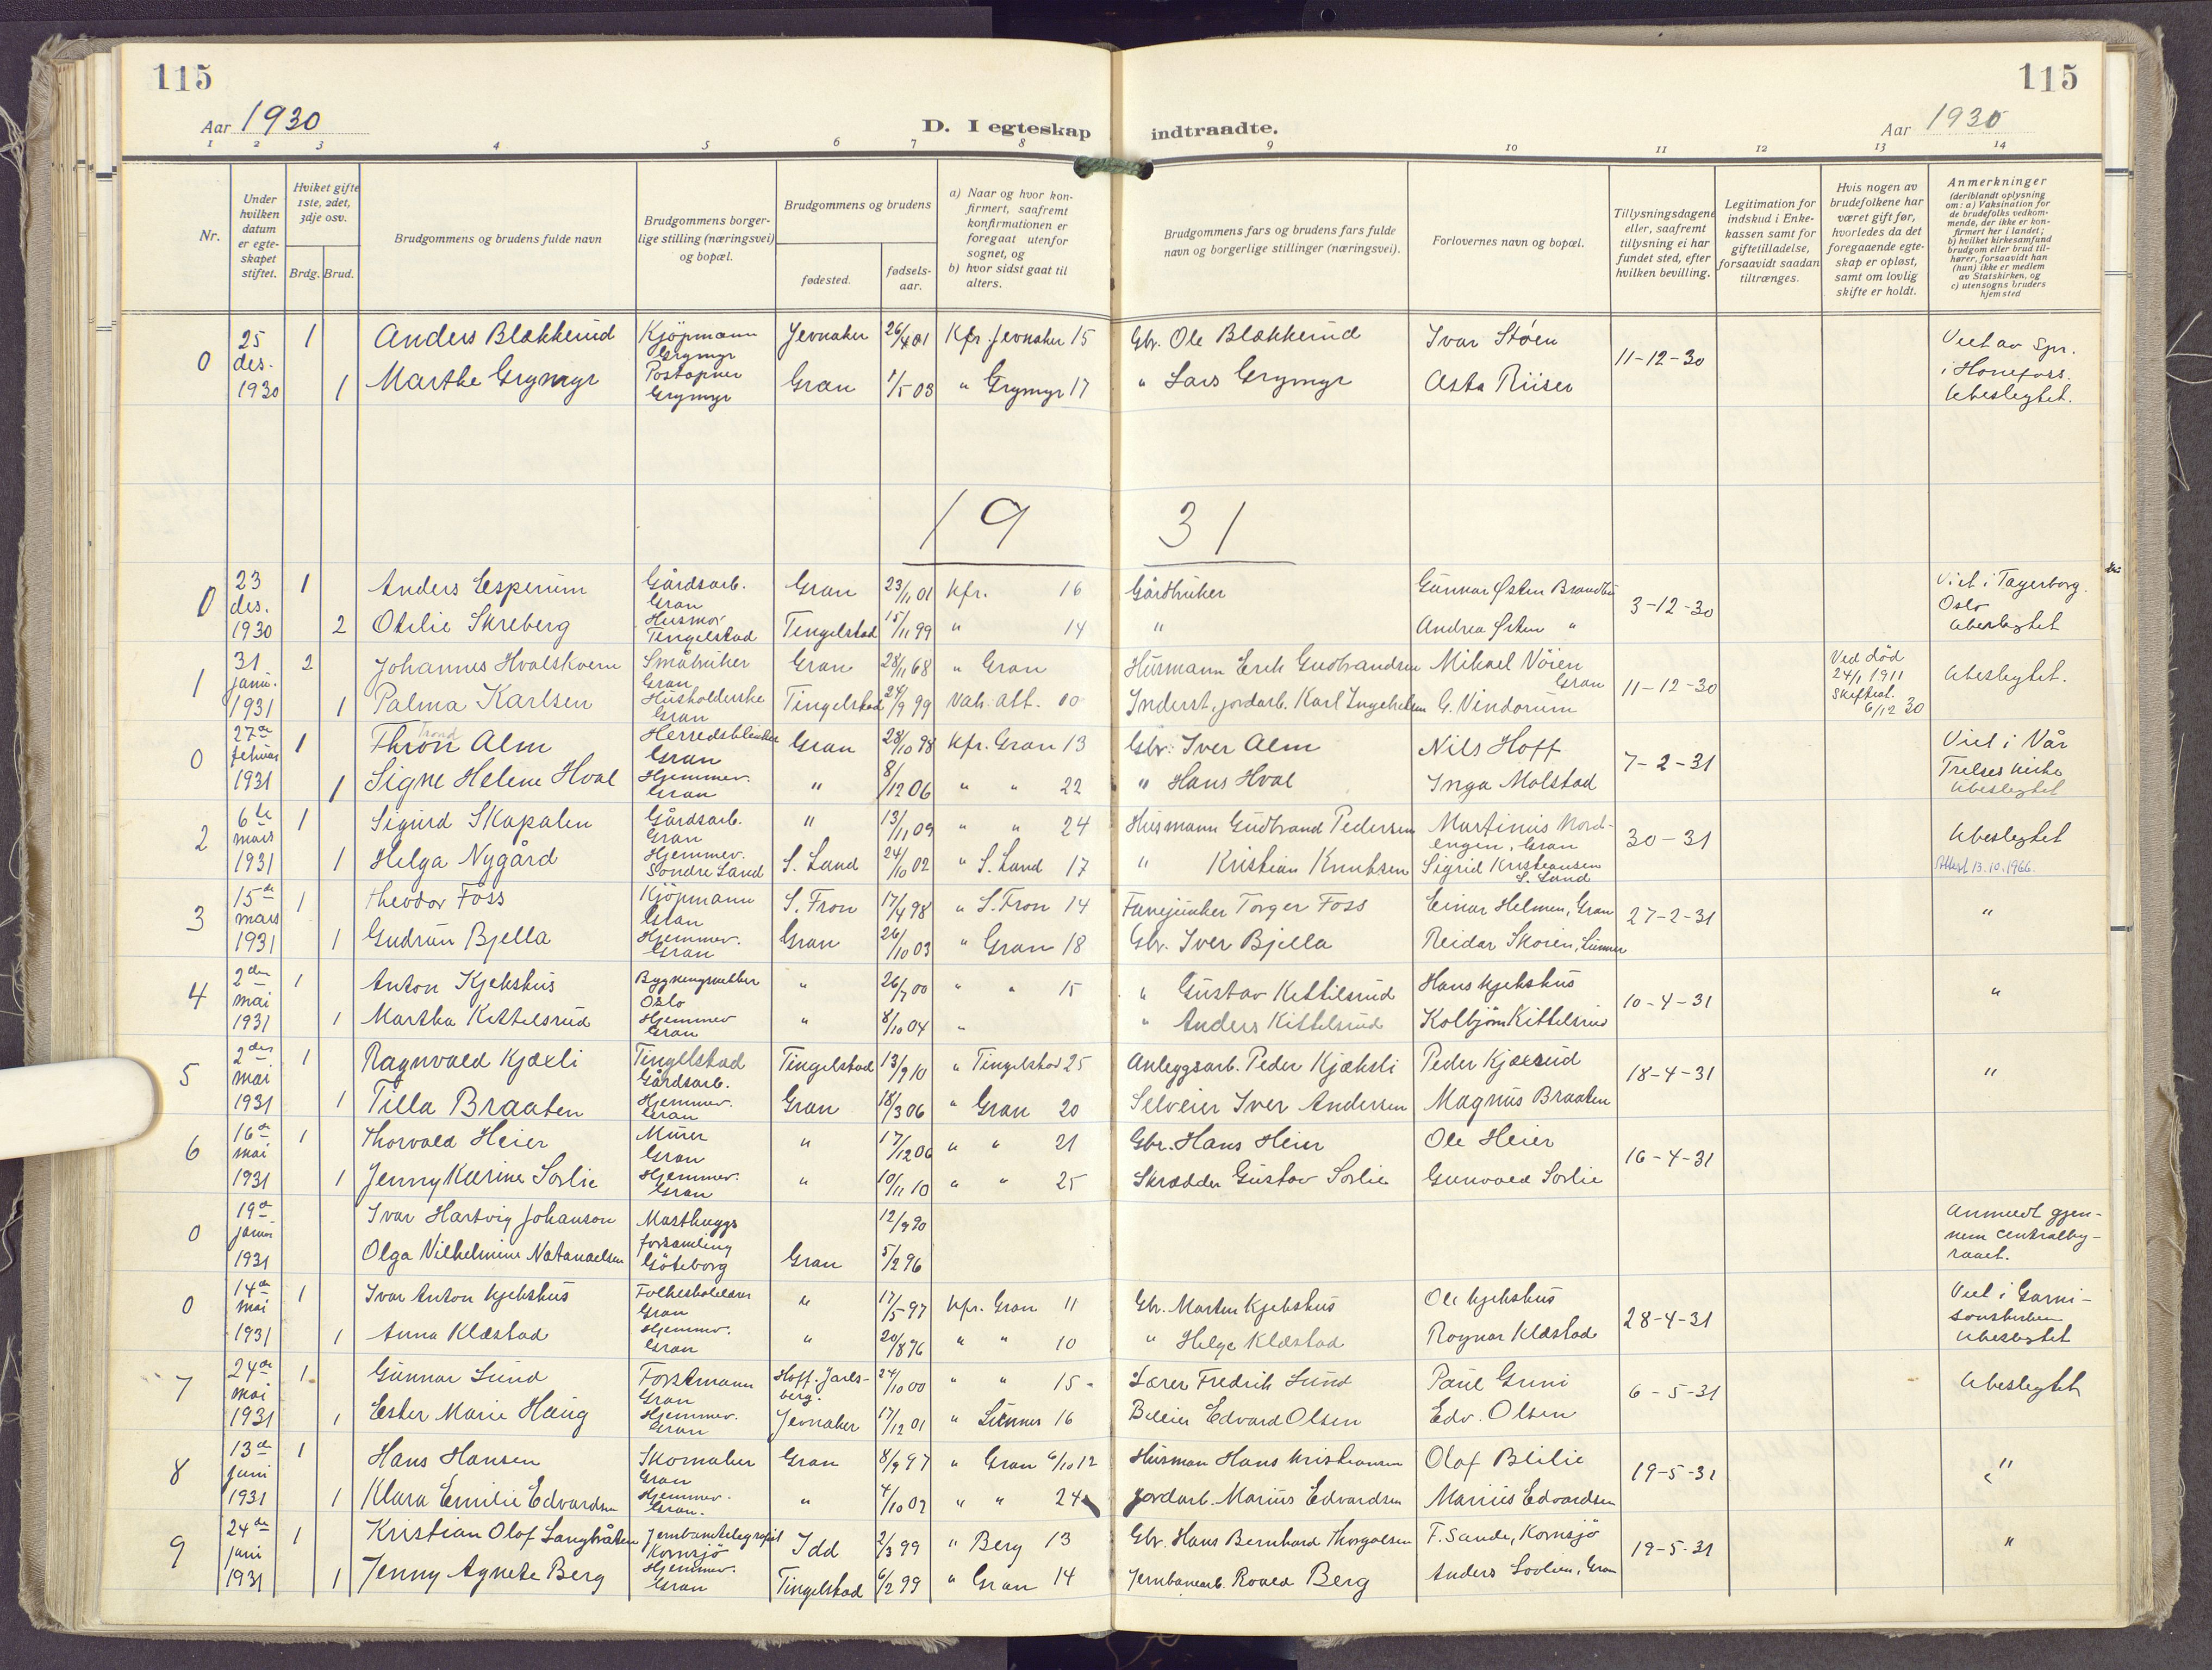 115
115
Aar 1930
D. I egteskap indtraadte.
Aar 1930
1 2 3 4 5 6 7 8 9 10 11 12 13 14
Nr.
Under hvilken datum er egteskapet stiftet.
Hviket gifte 1ste, 2det, 3dje osv.
Brdg. Brud.
Brudgommens og brudens fulde navn
Brudgommens borgerlige stilling (næringsvei) og bopæl.
Brudgommens og brudens
fødested. fødselsaar.
a) Naar og hvor konfirmert, saafremt konfirmationen er foregaat utenfor sognet, og
b) hvor sidst gaat til alters.
Brudgommens fars og brudens fars fulde navn og borgerlige stillinger (næringsvei).
Forlovernes navn og bopæl.
Tillysningsdagene eller, saafremt tillysning ei har fundet sted, efter hvilken bevilling.
Legitimation for indskud i Enkekassen samt for giftetilladelse, forsaavidt saadan tiltrænges.
Hvis nogen av brudefolkene har været gift før, hvorledes da det foregaaende egteskap er opløst, samt om lovlig skifte er holdt.
Anmerkninger (deriblandt oplysning om: a) Vaksination for de brudefolks vedkommende, der ikke er konfirmert her i landet; b) hvilket kirkesamfund brudgom eller brud tilhører, forsaavidt han (hun) ikke er medlem av Statskirken, og c) utensogns bruders hjemsted
0 25 des. 1930 1 Anders Blækkerud Kjöpmann Grymyr Jevnaker 26/4 01 Kfr. Jevnaker 15 Gbr. Ole Blækkerud Ivar Støen 11-12-30 Viet av spr. i Hønefoss. Ubeslegtet.
1 Marthe Grymyr Postopner Grymyr Gran 1/5 03 " Grymyr 17 " Lars Grymyr Asta Riiser
19 31
0 23 des. 1930 1 Anders Esperum Gårdsarb. Gran Gran 23/11 01 Kfr. 16 Gårdbruker Gunnar Østen Brandbu 3-12-30 Viet i Fagerborg. Oslo Ubeslegtet
2 Otilie Skreberg Husmor Tingelstad Tingelstad 15/11 99 " 14 " Andrea Østen "
1 31 janu. 1931 2 Johannes Hvalskvern Småbruker Gran Gran 28/11 68 " Gran Husmann Erik Gudbrandsen Mikael Vöien Gran 11-12-30 Ved död 24/1 1911 Skifteat. 6/12 30 Ubeslegtet.
1 Palma Karlsen Husholderske Gran Tingelstad 24/9 99 Vak. att. 00 Inderst, jordarb. Karl Ingebretsen G. Vindorum
0 27de februar 1931 1 Thron Alm Trond Gran Gran 28/10 98 Kfr. Gran 13 Gbr. Iver Alm Nils Hoff 7-2-31 Viet i Vår Frelses kirke Ubeslegtet
1 Signe Helene Hval Hjemmev. Gran " 8/12 06 " " 22 " Hans Hval Inga Molstad
2 6te mars 1931 1 Sigurd Skapalen Gårdsarb. Gran " 13/11 09 " " 24 Husmann Gudbrand Pedersen Martinus Nordengen, Gran 30-31 Ubeslegtet
1 Helga Nygård Hjemmev. Söndre Land S. Land 24/10 02 " S. Land 17 " Kristian Knutsen Sigrid Kristiansen S. Land Attest 13.10.1966.
3 15de mars 1931 1 Theodor Foss Kjöpmann Gran S. Fron 17/4 98 " S. Fron 14 Fanejunker Torger Foss Einar Helmen, Gran 27-2-31 "
1 Gudrun Bjella Hjemmev. Gran Gran 26/10 03 " Gran 18 Gbr. Iver Bjella Reidar Skoien, Lunner
4 2den mai 1931 1 Anton Kjekshus Oslo " 26/7 00 " " 15 " Gustav Kittilsrud Hans Kjekshus 10-4-31 "
1 Martha Kittelsrud Hjemmev Gran " 8/10 04 " " Anders Kittelsrud Kolbjørn Kittelsrud
5 2den mai 1931 1 Ragnvald Kjæxli Tingelstad Gårdsarb. Tingelstad 13/9 10 " Tingelstad 25 Anleggsarb. Peder Kjæksli Peder Kjæxrud 18-4-31 "
1 Tilla Braaten Hjemmev. Gran Gran 18/3 06 " Gran 20 Selveier Iver Andersen Magnus Braaten
6 16de mai 1931 1 Thorvald Heier Murer Gran " 17/12 06 " " 21 Gbr. Hans Heier Ole Heier 16-4-31
1 Jenny Karine Sorlie Hjemmev. Gran " 10/11 10 " " 25 Skrædder Gustav Sorlie Gunvald Sorlie
0 19de januar 1931 Ivar Hartvig Johanson Masthuggs forsamling Göteborg 12/9 90 Anmeldt gjennem Centralbyraaet.
Olga Vilhelmine Natanaelsen Gran 5/2 96
0 14de mai 1931 1 Ivar Anton Kjekshus Folkeskolelærer Gran " 17/5 97 Kfr. Gran 11 Gbr. Marten Kjekshus Ole Kjekshus 28-4-31 Viet i Garnisonskirken Ubeslegtet
1 Anna Klæstad Hjemmev. Gran " 20/8 96 " " 10 " Helge Klæstad Ragnar Klæstad
7 24de mai 1931 1 Gunnar Lund Forstmann Gran Hoff. Jarlsberg. 24/10 00 " " 15 Lærer Fredrik Lund Paul Gruni 6-5-31 Ubeslegtet
1 Ester Marie Haug Hjemmev. Gran Jevnaker 17/12 01 " Lunner 16 Edvard Olsen Edv. Olsen
8 13de juni 1931 1 Hans Hansen Skomaker Gran Gran 8/9 97 " Gran 6/10 12 Husman Hans Kristiansen Olaf Blilie 19-5-31 "
1 Klara Emilie Edvardsen Hjemmev. Gran. " 4/10 07 " " 24 Jordarb. Marius Edvardsen Marius Edvardsen
9 24de juni 1931 1 Kristian Olaf Langbråten Jernbanetelegrafist Kornsjö Idd 2/3 99 " Berg 13 Gbr. Hans Bernhard Thorvalsen F. Sande, Kornsjö 19-5-31 "
1 Jenny Agnete Berg Hjemmev. Gran Tingelstad 6/2 99 " Gran 14 Jernbanearb. Roald Berg Anders Lovlien, Gran